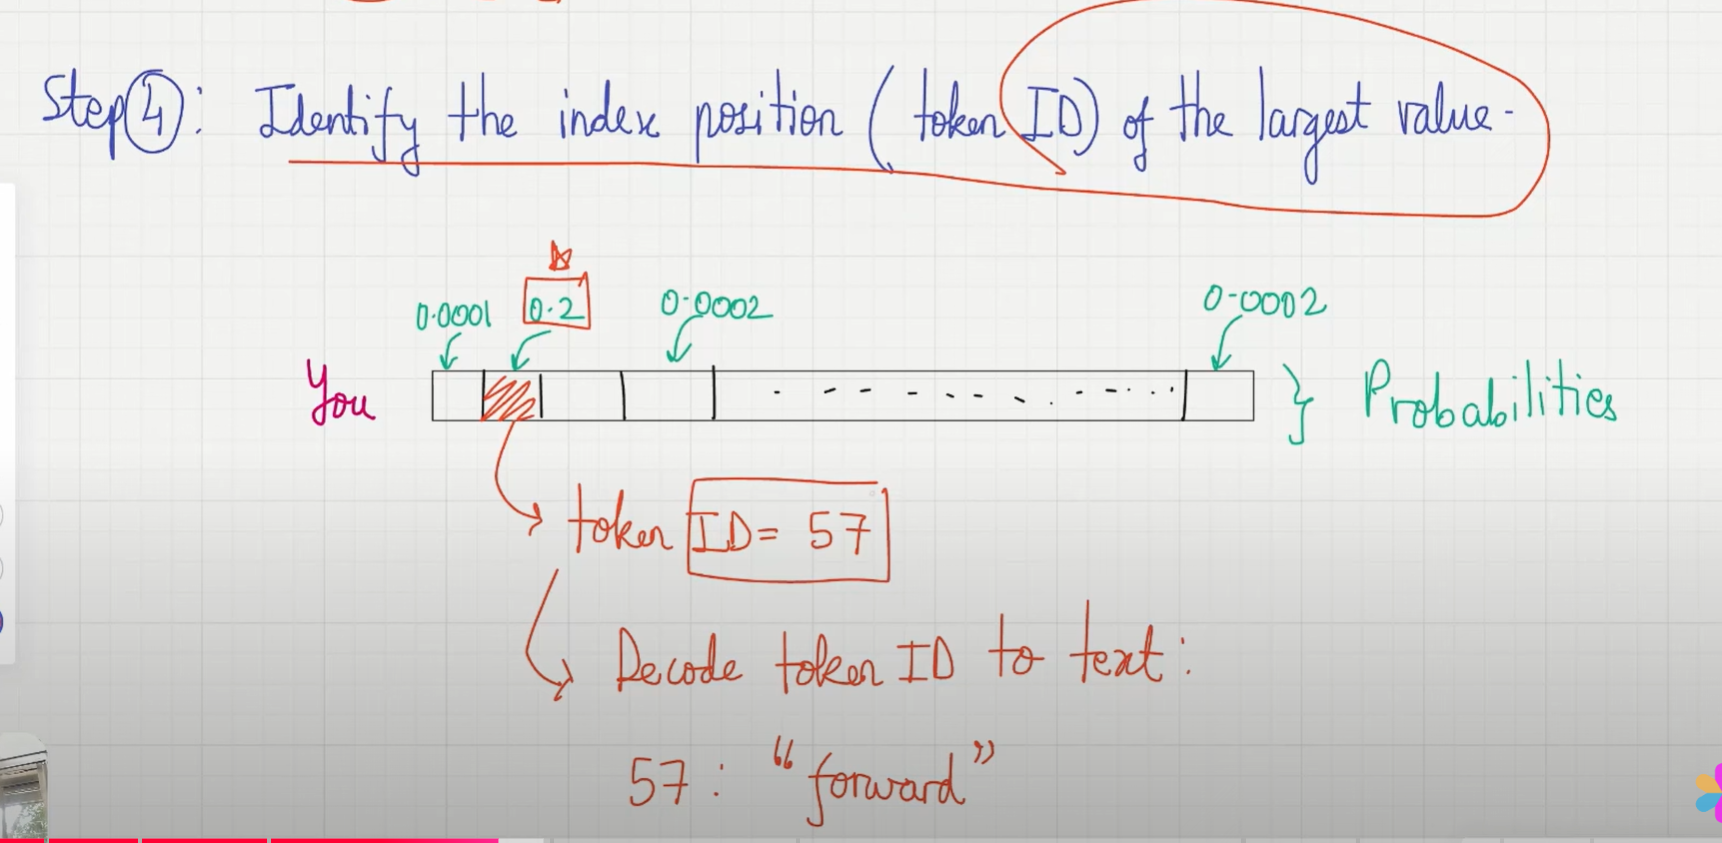 Step 4: Identify the index position (token ID) of the largest value.
0.0001 0.2 0.0002 0.0002
You } Probabilities
token ID = 57
Decode token ID to text:
57: "forward"